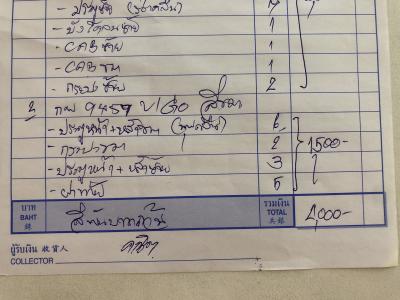 - บังโคลนซ้าย 1
- CAB ซ้าย 1
- CAB ขวา 1
- กระบะซ้าย 2
2 กพ 9459
- ประตูหน้า+หลังขวา 6
- กระบะขวา 2 1500-
- ประตูหน้า+หลังซ้าย 3
- ฝาท้าย 5
บาท BAHT 銖 สี่พันบาทถ้วน รวมเงิน TOTAL 共銀 4,000-
ผู้รับเงิน 收賞人
COLLECTOR